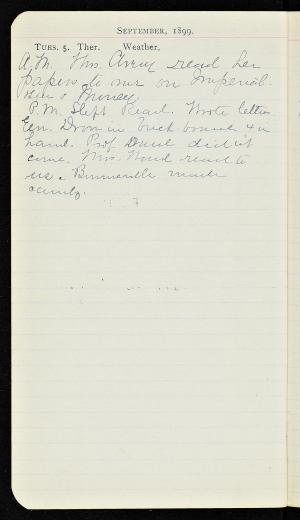 SEPTEMBER, 1899.
TUES. 5. Ther. Weather,
A.M. Mrs. Avery read her
papers to me on Imperial-
ism & Money
P.M. Slept Read. Wrote letters
Eve. Drove in buckboard 4 in
hand. Prof. didn't
come. Mrs. read to
us. made
candy.